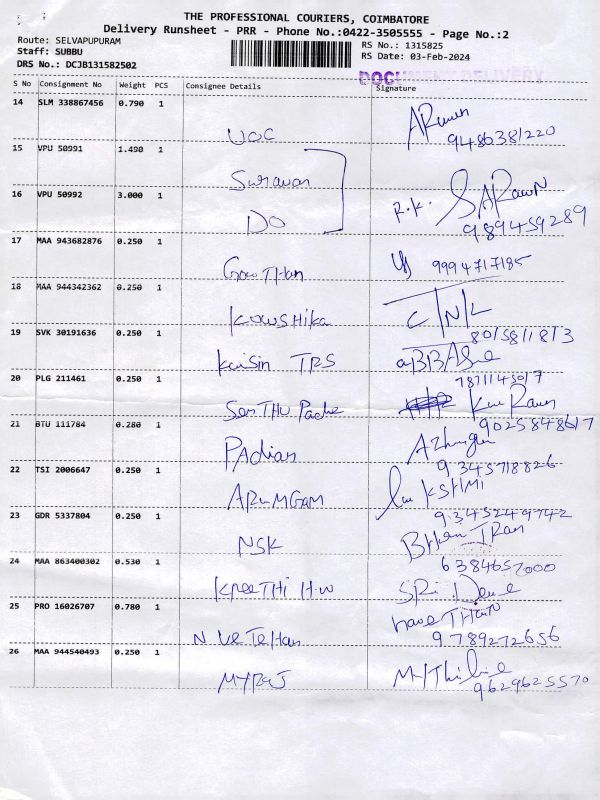 THE PROFESSIONAL COURIERS, COIMBATORE
Delivery Runsheet - PRR - Phone No.:0422-3505555 - Page No.:2
Route: SELVAPUPURAM
Staff: SUBBU
DRS No.: DCJB131582502
RS No.: 1315825
RS Date: 03-Feb-2024
DOCUMENT DELIVERY
S No Consignment No Weight PCS Consignee Details Signature
14 SLM 338867456 0.790 1
UOC
9486381220
15 VPU 50991 1.490 1
Saravan
16 VPU 50992 3.000 1
DO
R.K. SARavN
9894459289
17 MAA 943682876 0.250 1
GowTHan
9994717185
18 MAA 944342362 0.250 1
KowSHika
C/N/L
8015811813
19 SVK 30191636 0.250 1
TRS
20 PLG 211461 0.250 1
SenTHU
21 BTU 111784 0.280 1
PAdian
9025848617
22 TSI 2006647 0.250 1
ARUMGAM
9345718826
LaKSHMI
23 GDR 5337804 0.250 1
NSK
9345249742
24 MAA 863400302 0.530 1
KReeTHi
6384657000
25 PRO 16026707 0.780 1
9789272656
26 MAA 944540493 0.250 1
9629625570